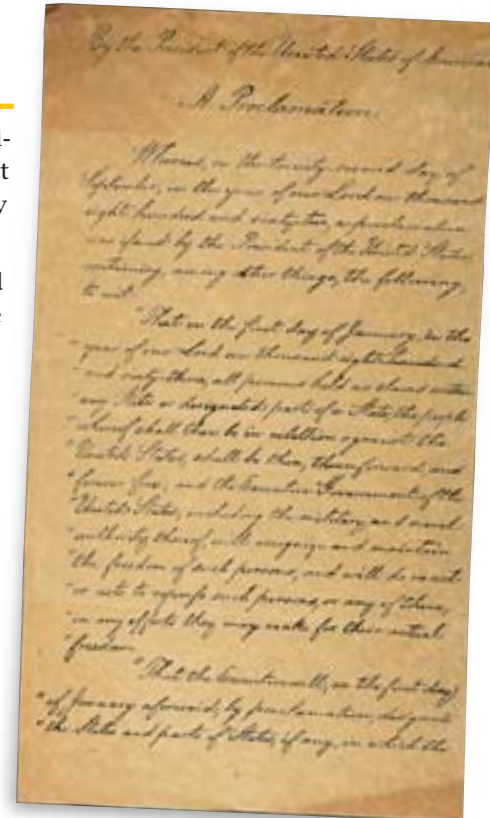 By the President of the United States of America
A Proclamation.
Whereas, on the twenty-second day of
September, in the year of our Lord one thousand
eight hundred and sixty two, a proclamation
was issued by the President of the United States
containing, among other things, the following,
to wit:
"That on the first day of January, in the
"year of our Lord one thousand eight hundred
"and sixty-three, all persons held as slaves within
"any State or designated part of a State, the people
"whereof shall then be in rebellion against the
"United States, shall be then, thenceforward, and
"forever free; and the Executive Government of the
"United States, including the military and naval
"authority thereof, will recognize and maintain
"the freedom of such persons, and will do no act
"or acts to repress such persons, or any of them,
"in any efforts they may make for their actual
"freedom.
"That the Executive will, on the first day
"of January aforesaid, by proclamation, designate
"the States and parts of States, if any, in which the